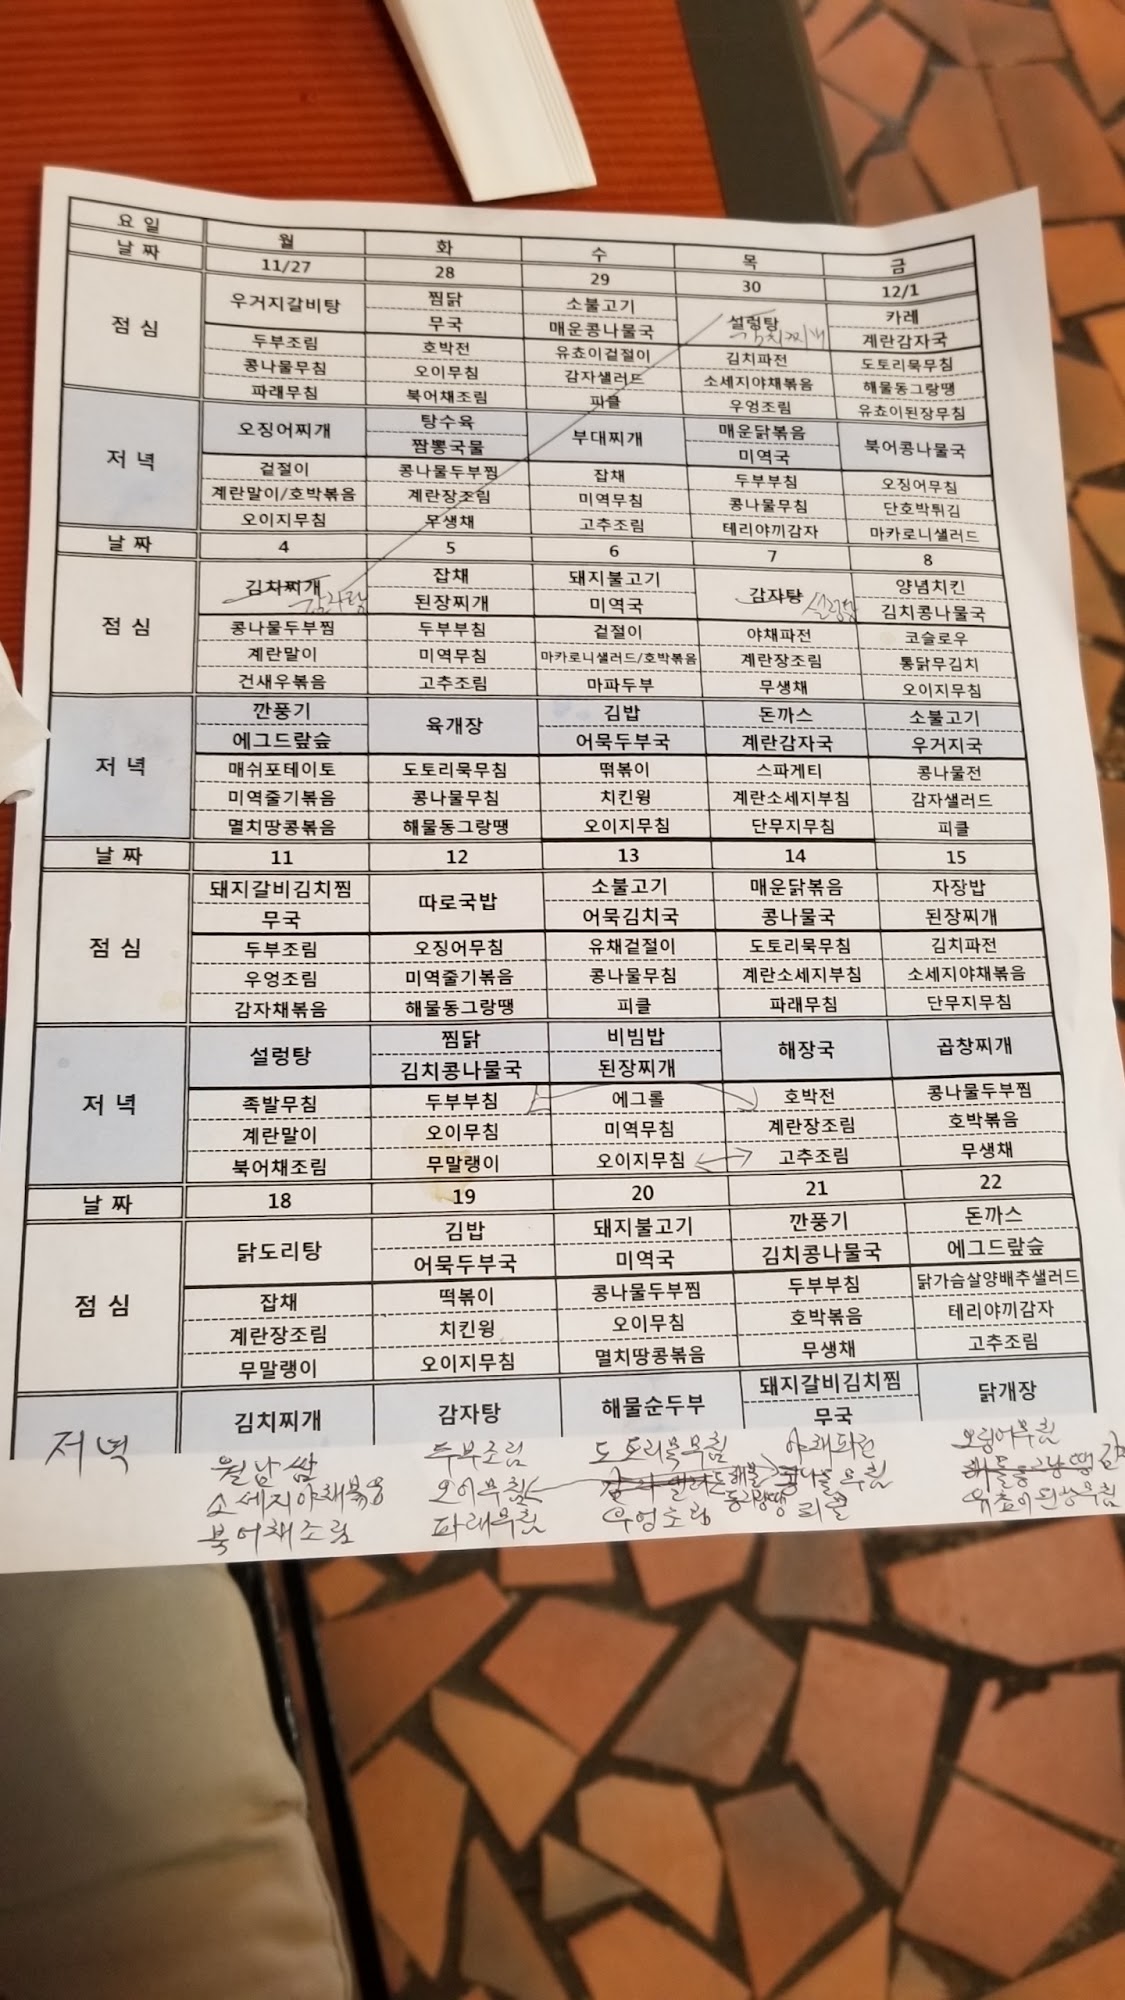 요일 월 화 수 목 금
날짜 11/27 28 29 30 12/1
점심 우거지갈비탕 찜닭 소불고기 설렁탕 카레
무국 매운콩나물국 김치찌개 계란감자국
두부조림 호박전 유쵸이겉절이 김치파전 도토리묵무침
콩나물무침 오이무침 감자샐러드 소세지야채볶음 해물동그랑땡
파래무침 북어채조림 피클 우엉조림 유쵸이된장무침
저녁 오징어찌개 탕수육 부대찌개 매운닭볶음 북어콩나물국
짬뽕국물 미역국
겉절이 콩나물두부찜 잡채 두부부침 오징어무침
계란말이/호박볶음 계란장조림 미역무침 콩나물무침 단호박튀김
오이지무침 무생채 고추조림 테리야끼감자 마카로니샐러드
날짜 4 5 6 7 8
점심 김치찌개 잡채 돼지불고기 감자탕 양념치킨
감자탕 된장찌개 미역국 설렁탕 김치콩나물국
콩나물두부찜 두부부침 겉절이 야채파전 코슬로우
계란말이 미역무침 마카로니샐러드/호박볶음 계란장조림 통닭무김치
건새우볶음 고추조림 마파두부 무생채 오이지무침
저녁 깐풍기 육개장 김밥 돈까스 소불고기
에그드랖숲 어묵두부국 계란감자국 우거지국
매쉬포테이토 도토리묵무침 떡볶이 스파게티 콩나물전
미역줄기볶음 콩나물무침 치킨윙 계란소세지부침 감자샐러드
멸치땅콩볶음 해물동그랑땡 오이지무침 단무지무침 피클
날짜 11 12 13 14 15
점심 돼지갈비김치찜 따로국밥 소불고기 매운닭볶음 자장밥
무국 어묵김치국 콩나물국 된장찌개
두부조림 오징어무침 유채겉절이 도토리묵무침 김치파전
우엉조림 미역줄기볶음 콩나물무침 계란소세지부침 소세지야채볶음
감자채볶음 해물동그랑땡 피클 파래무침 단무지무침
저녁 설렁탕 찜닭 비빔밥 해장국 곱창찌개
김치콩나물국 된장찌개
족발무침 두부부침 에그롤 호박전 콩나물두부찜
계란말이 오이무침 미역무침 계란장조림 호박볶음
북어채조림 무말랭이 오이지무침 고추조림 무생채
날짜 18 19 20 21 22
점심 닭도리탕 김밥 돼지불고기 깐풍기 돈까스
어묵두부국 미역국 김치콩나물국 에그드랖숲
잡채 떡볶이 콩나물두부찜 두부부침 닭가슴살양배추샐러드
계란장조림 치킨윙 오이무침 호박볶음 테리야끼감자
무말랭이 오이지무침 멸치땅콩볶음 무생채 고추조림
저녁 김치찌개 감자탕 해물순두부 돼지갈비김치찜 닭개장
무국
월남쌈 두부조림 도토리묵무침 야채파전 오징어무침
소세지야채볶음 오이무침 해물동그랑땡 콩나물무침
북어채조림 파래무침 우엉조림 피클 유쵸이된장무침